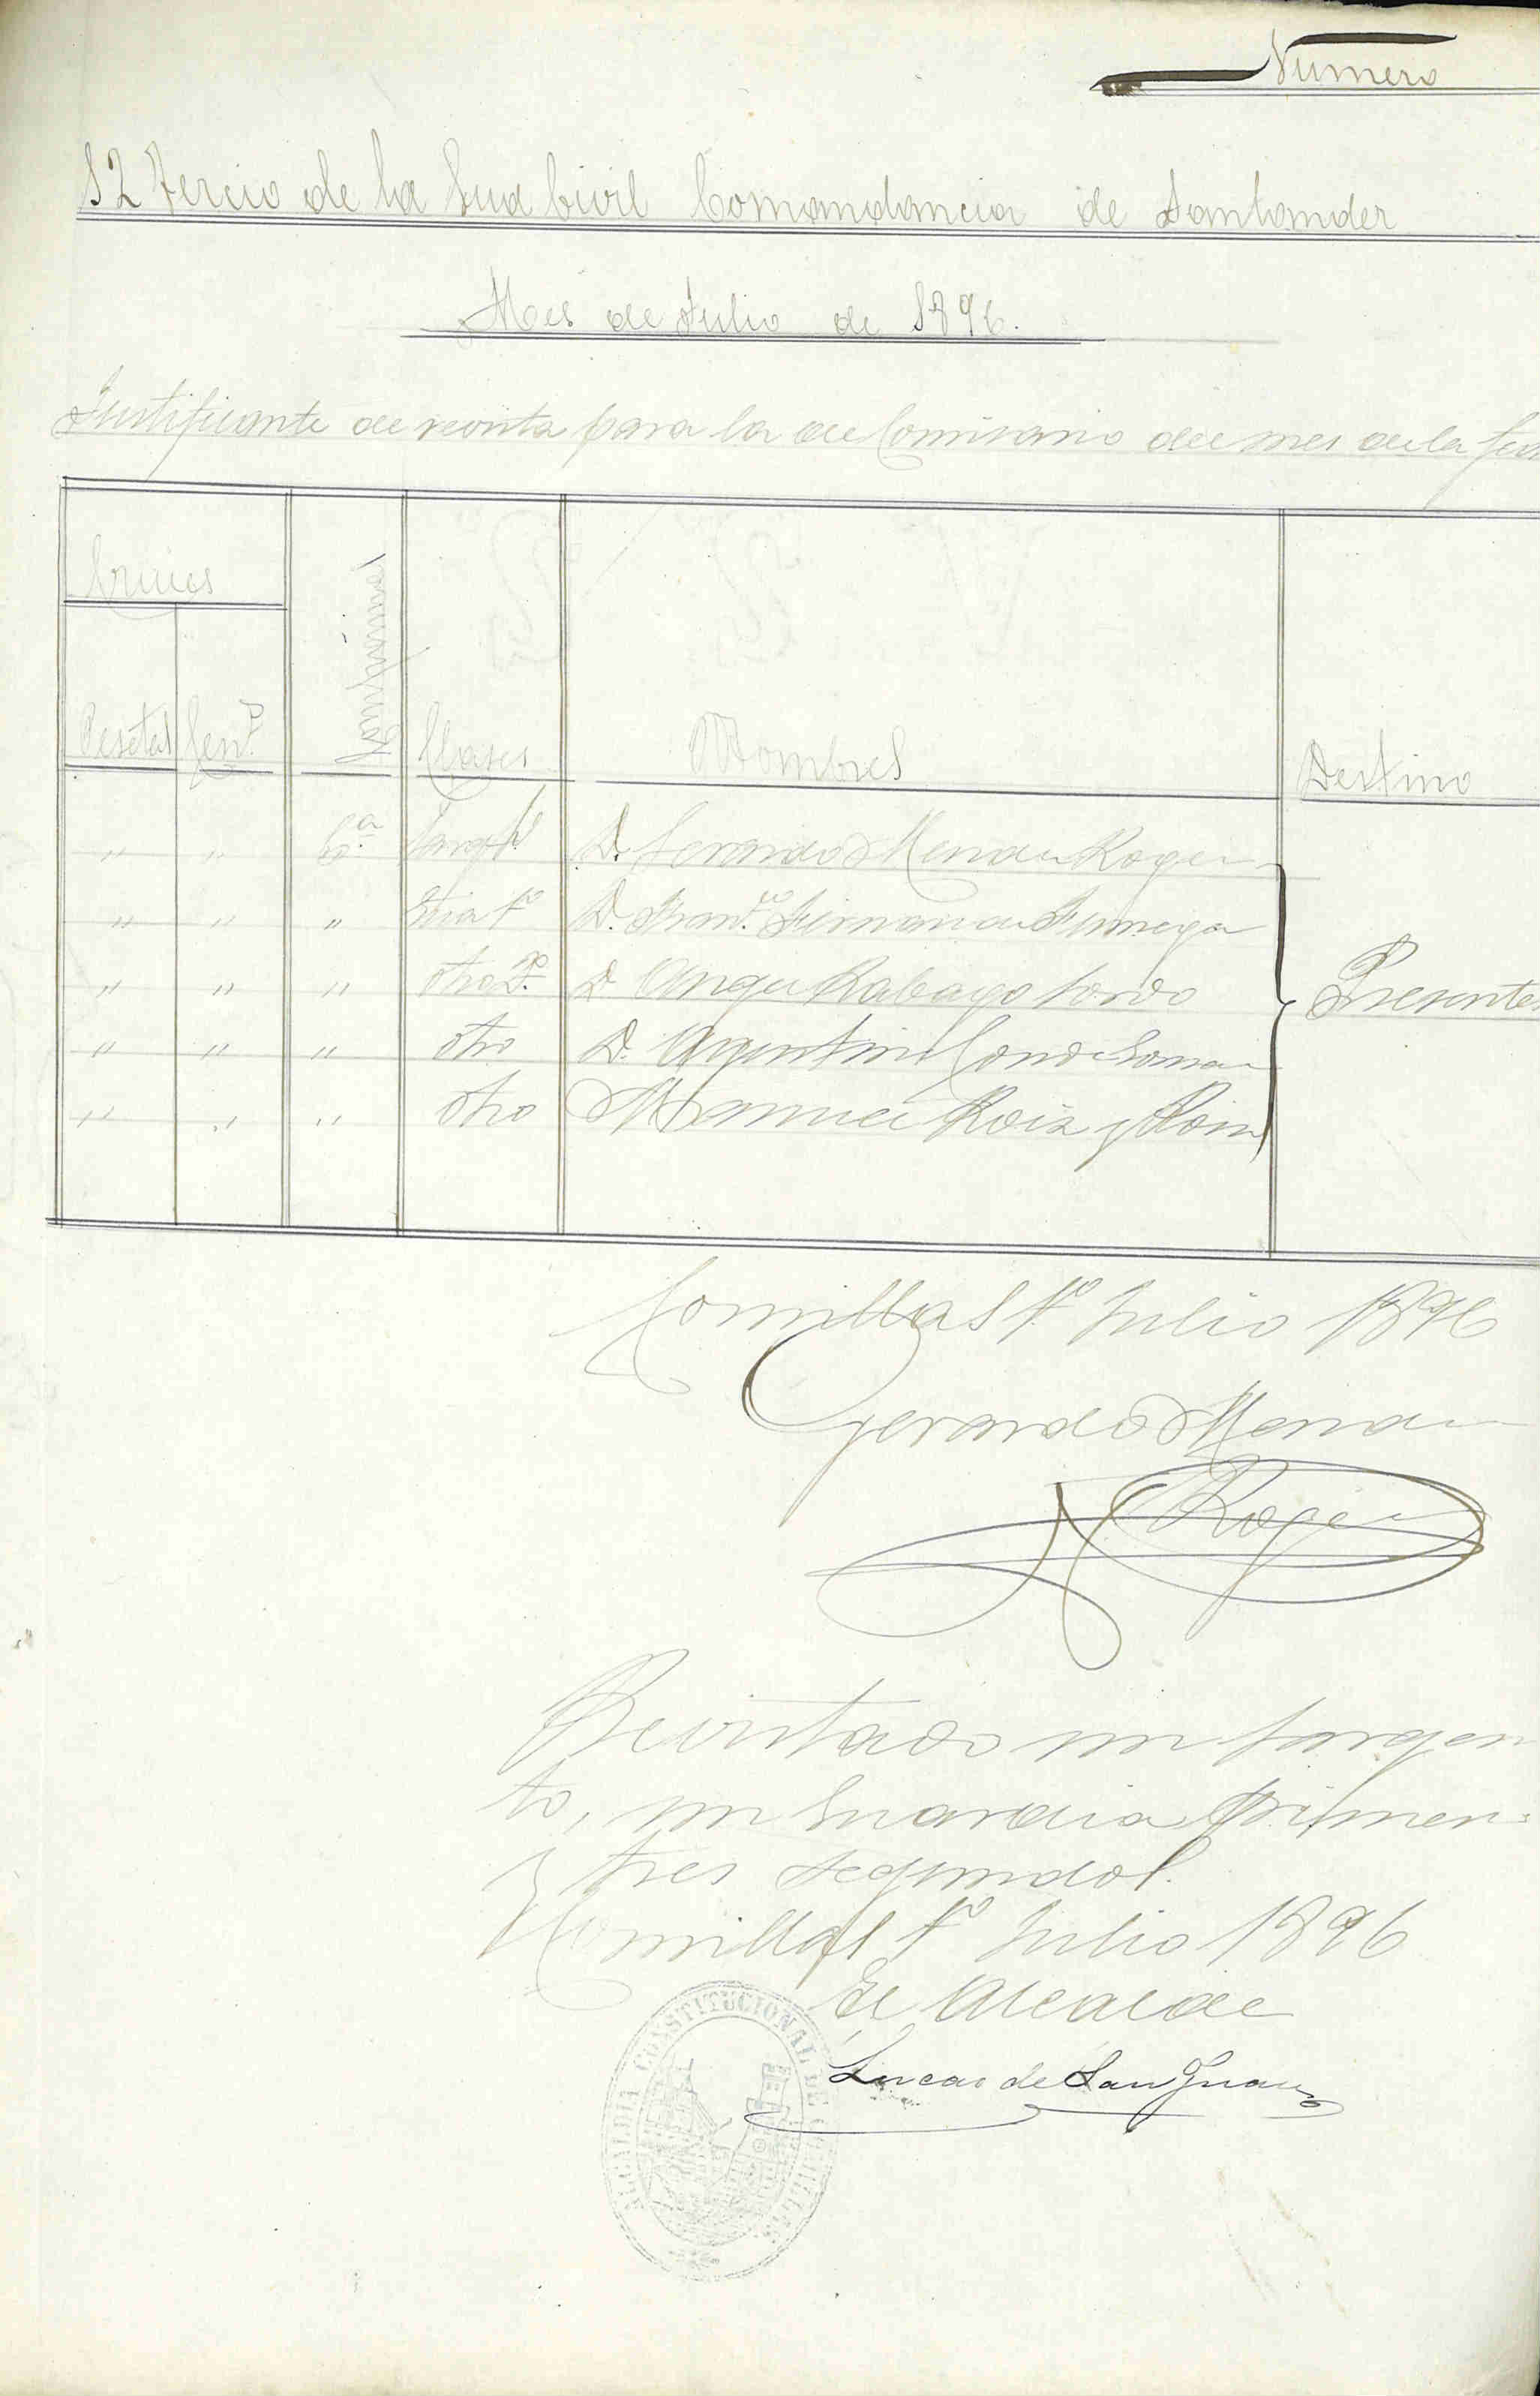 Número
12 Tercio de la Gua Civil Comandancia de Santander
Mes de Julio de 1896.
Justificante de revista para la de Comisario del mes de la
Cruces
Pesetas Cent.s Compañías Clases Nombres Destino
" " 6.a Sarg.to D. Gerardo Mendez Roger
" " " Gdia 1.o D. Fran.co Fernandez Fumega
" " " otro 2.o D. Angel Rabago Sordo Presentes
" " " otro D. Agustin Conde
" " " otro Manuel Roiz y Roiz
Comillas 1.o Julio 1896
Gerardo Mendez
Roger
Revistado un Sargen
to, un Guardia primero
y tres segundos.
Comillas 1.o Julio 1896
El Alcalde
Lucas de San Juan
ALCALDIA CONSTITUCIONAL DE COMILLAS